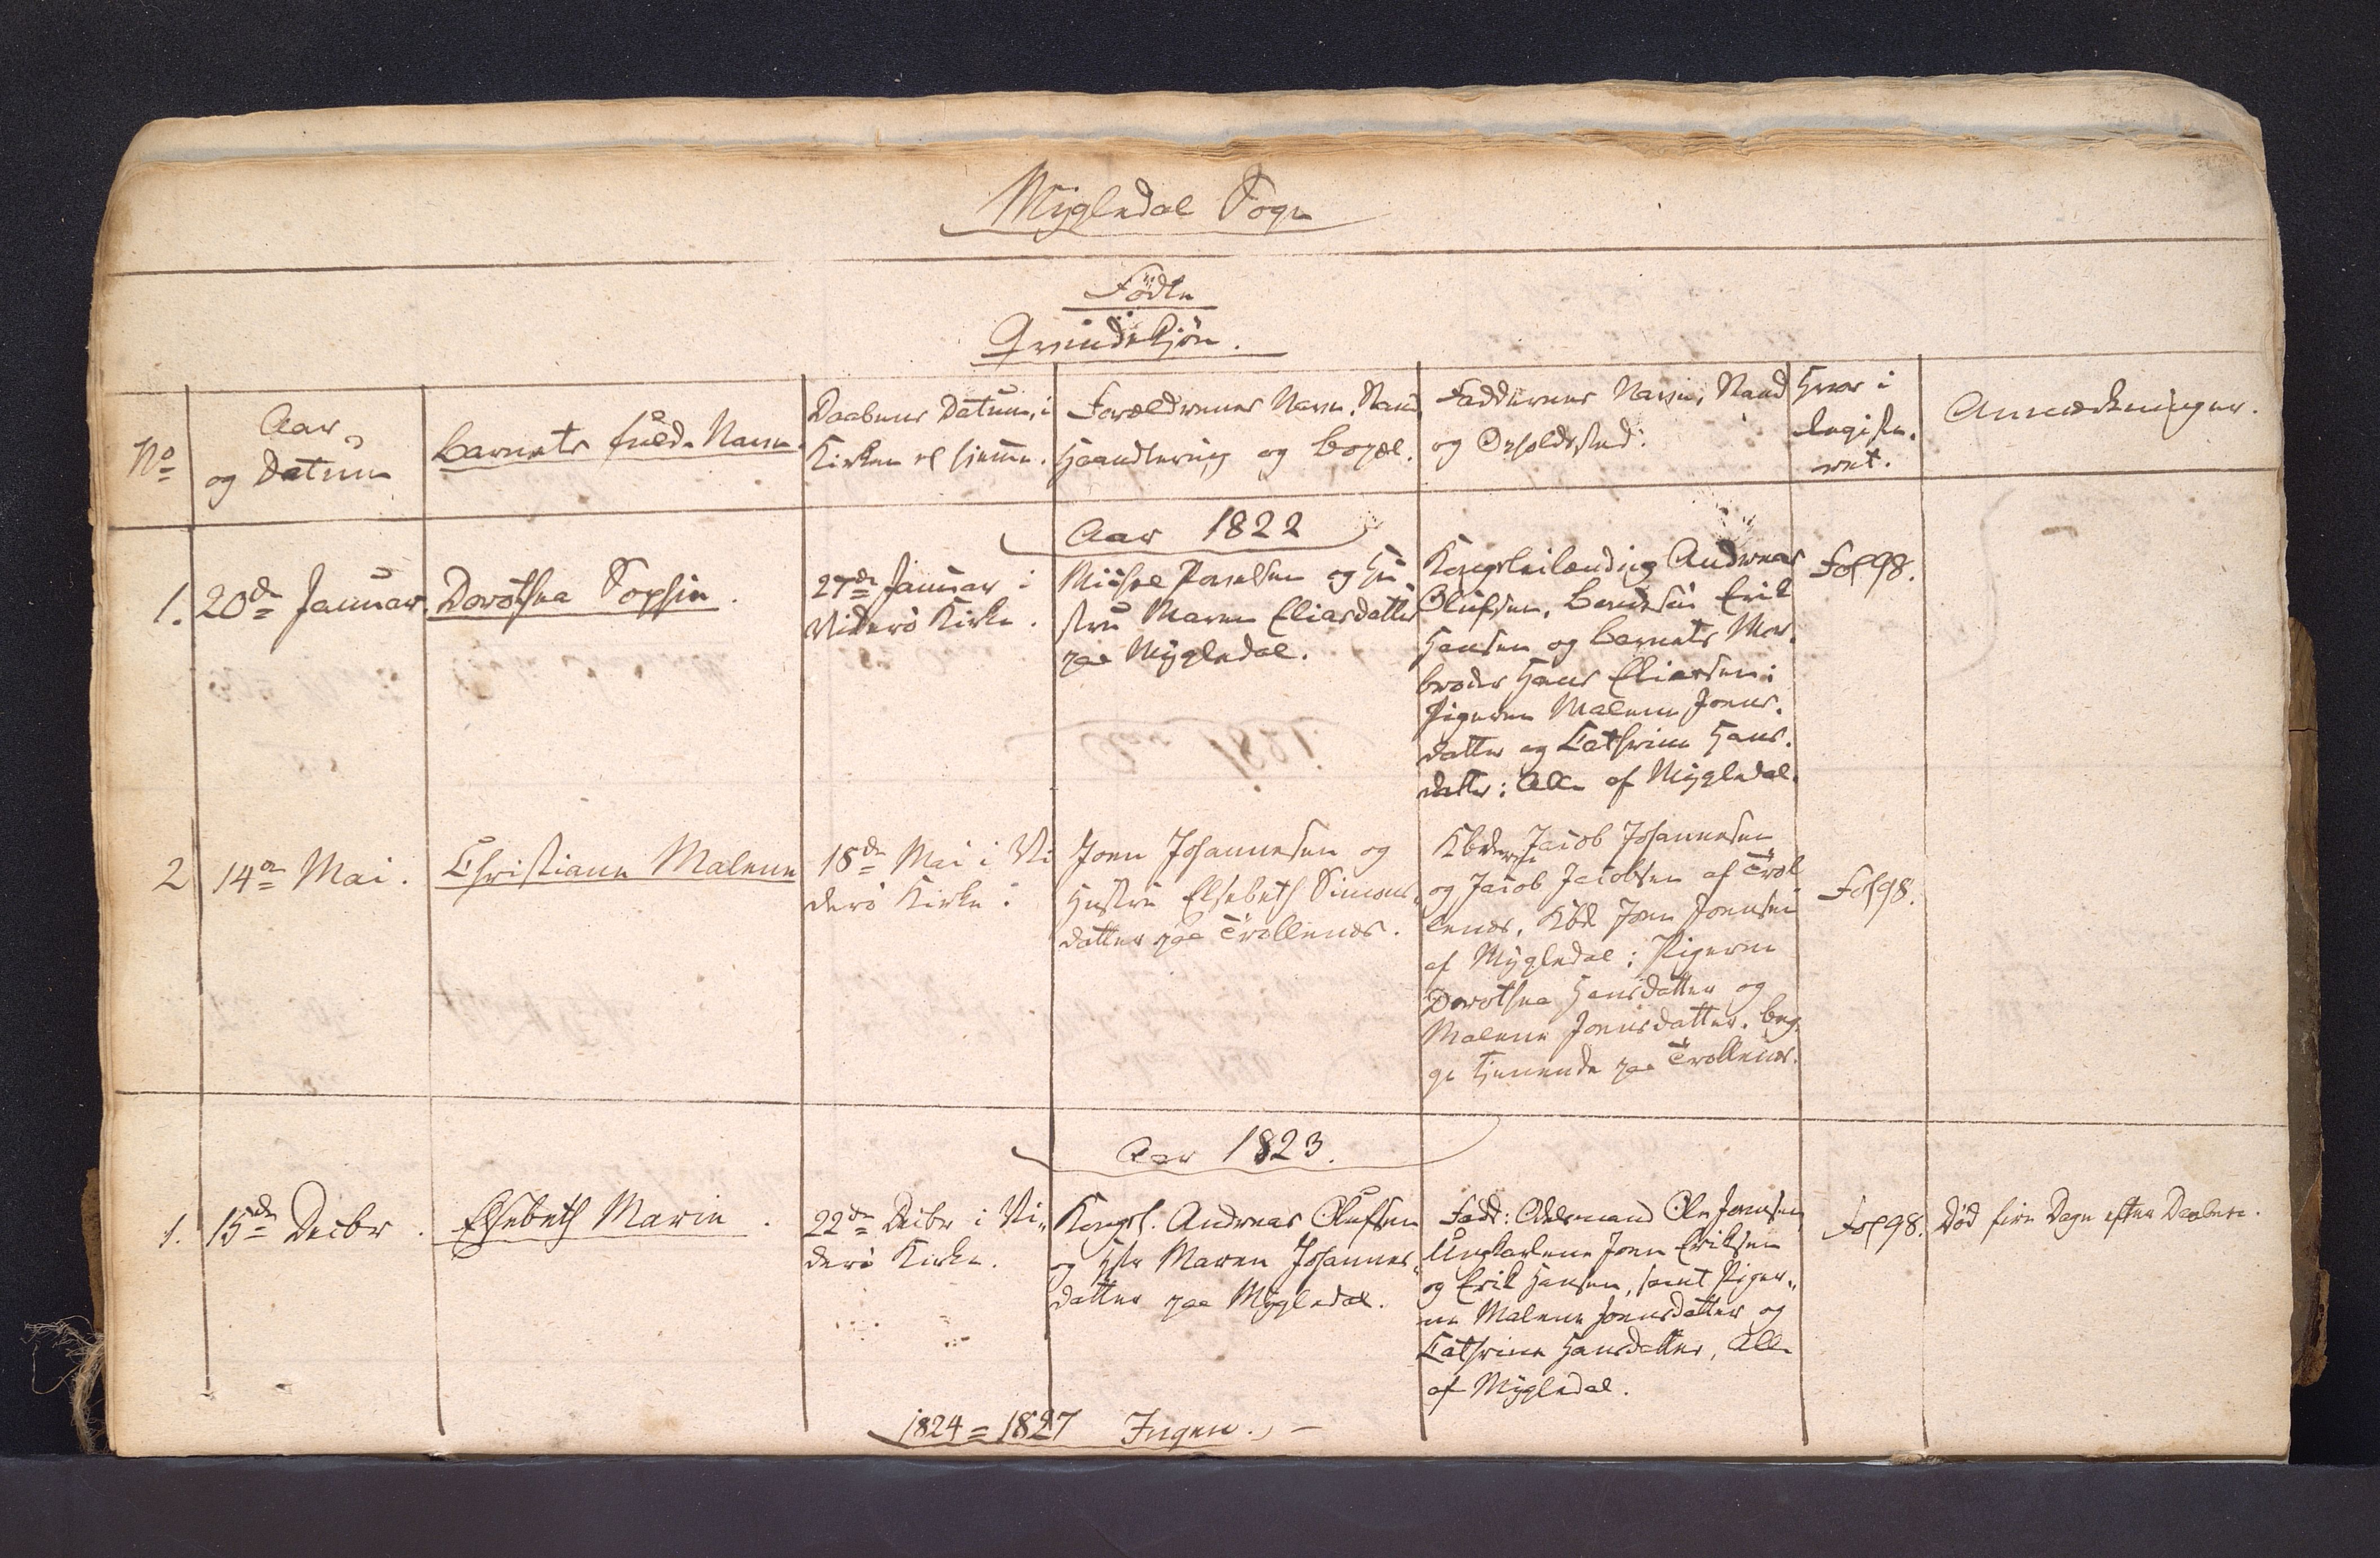 Mygledal Sogn
Fødte
Qvindekjøn.
No
Aar
og Datum
Barnets fulde Navn.
Daabens Datum, i
Kirken el hjemme.
Forældrenes Navn, Stand
Haandtering og Bopæl.
Faddernes Navn, Stand
og Opholdsted.
Hvor i
Registe-
ret.
Anmærkninger.
Aar 1822
1.
20de Januar.
Dorothea Sophie.
27de Januar i
Viderø Kirke.
Michel Poulsen og Hu-
stru Maren Eliasdatter
paa Mygledal.
Kongsleilænding Andreas
Olufsen, Bondesøn Erik
Hansen og Barnets Mor-
broder Hans Eliassen;
Pigerne Malene Joens-
datter og Cathrine Hans-
datter: Alle af Mygledal.
Fol 98.
2
14de Mai.
Christiane Malene
18de Mai i Vi
derø Kirke.
Joen Johannesen og
Hustru Elsebeth Simons-
datter paa Trollenæs.
Kbderne Jacob Johannesen
og Jacob Jacobsen af Trol
lenæs, Kbd Joen Joensen
af Mygledal; Pigerne
Dorothea Hansdatter og
Malene Joensdatter, beg-
ge tjenende paa Trollenæs.
Fol 98.
Aar 1823.
1.
15de Decbr.
Elsebeth Marie.
22de Decbr i Vi-
derø Kirke.
Kongsl. Andreas Olufsen
og Hstr Maren Johannes-
datter paa Mygledal.
Fadd: Odelsmand Ole Joensen,
Ungkarlene Joen Eriksen
og Erik Hansen, samt Piger-
ne Malene Joensdatter og
Cathrine Hansdatter, Alle
af Mygledal.
Fol 98.
Død fire Dage efter Daaben.
1824 = 1827 Ingen. –